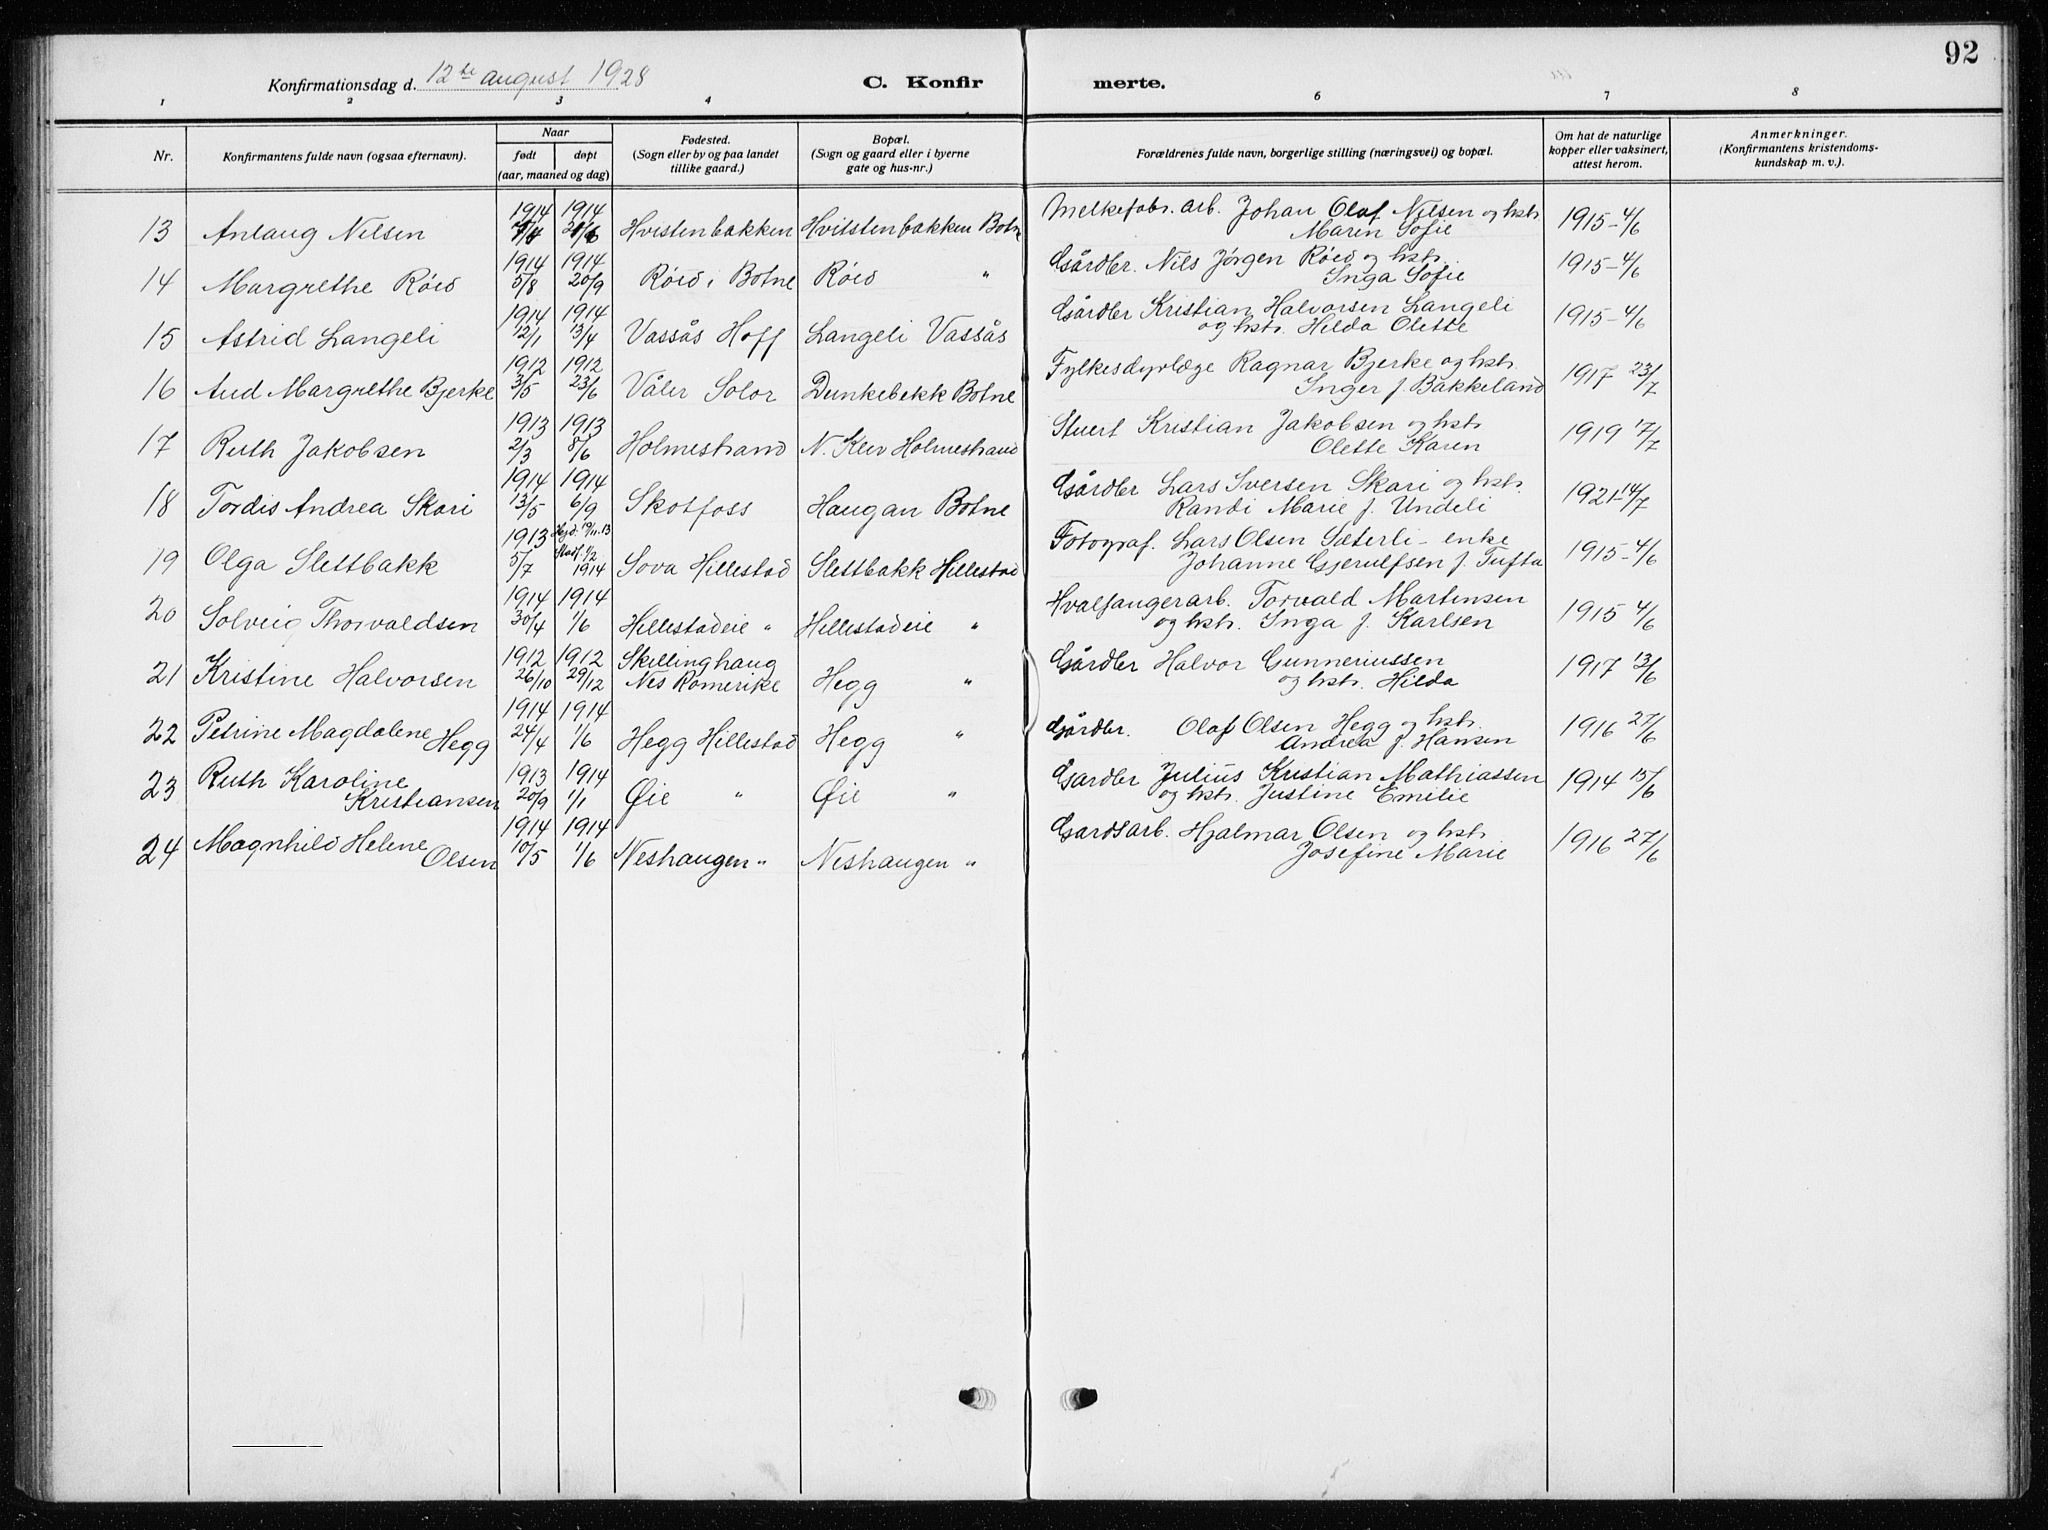 92
Konfirmationsdag d. 12te august 1928 C. Konfir merte.
1 2 3 4 5 6 7 8
Nr. Konfirmantens fulde navn (ogsaa efternavn). Naar født døpt (aar, maaned og dag) Fødested. (Sogn eller by og paa landet tillike gaard.) Bopæl. (Sogn og gaard eller i byerne gate og hus-nr.) Forældrenes fulde navn, borgerlige stilling (næringsvei) og bopæl. Om hat de naturlige kopper eller vaksinert, attest herom. Anmerkninger. (Konfirmantens kristendoms-kundskap m. v.).
13 Anlaug Nilsen 1914 1914 Hvistenbakken Hvitstenbakken Botne Melkefabr. arb. Johan Olaf Nilsen og hstr. Maren Sofie 1915 - 4/6
14 Margrethe Röed 1914 5/8 1914 20/9 Röed i Botne Röed " Gårdbr. Nils Jörgen Röed og hstr. Inga Sofie 1915 - 4/6
15 Astrid Langeli 1914 12/1 1914 13/4 Vassås Hoff Langeli Vassås Gårdbr Kristian Halvorsen Langeli og hstr. Hilda Olette 1915 - 4/6
16 Aud Margrethe Bjerke 1912 3/5 1912 23/6 Våler Solor Dunkebekk Botne Fylkesdyrlæge Ragnar Bjerke og hstr. Inger f. Bakkeland 1917 23/7
17 Ruth Jakobsen 1913 2/3 1913 8/6 Holmestrand N. Klev Holmestrand Stuert Kristian Jakobsen og hstr. Olette Karen 1919 17/7
18 Tordis Andrea Skari 1914 13/5 1914 6/9 Skotfoss Haugan Botne Gårdbr Lars Iversen Skari og hstr. Randi Marie f. Undeli 1921 - 14/7
19 Olga Slettbakk 1913 5/7 Hjd. 19/11.13 Stadf. 1/2 1914 Sova Hillestad Slettbakk Hillestad Fotograf. Lars Olsen Sæterli - enke Johanne Gjerulfsen f. Tufta 1915 - 4/6
20 Solveig Thorvaldsen 1914 30/4 1914 1/6 Hillestadeie " Hillestadeie " Hvalfangerarb. Torvald Martinsen og hstr. Inga f. Karlsen 1915 4/6
21 Kristine Halvorsen 1912 26/10 1912 29/12 Skillinghaug Nes Romerike Hegg " Gårdbr Halvor Gunneriussen og hstr. Hilda 1917 13/6
22 Petrine Magdalene Hegg 1914 24/4 1914 1/6 Hegg Hillestad Hegg " Gårdbr. Olaf Olsen Hegg og hstr. Andrea f. Hansen 1916 27/6
23 Ruth Karoline Kristiansen 1913 20/9 1914 1/1 Øie " Øie " Gardbr Julius Kristian Mathiassen og hstr. Justine Emilie 1914 15/6
24 Magnhild Helene Olsen 1914 10/5 1914 1/6 Neshaugen " Neshaugen " Gardsarb. Hjalmar Olsen og hstr. Josefine Marie 1916 27/6